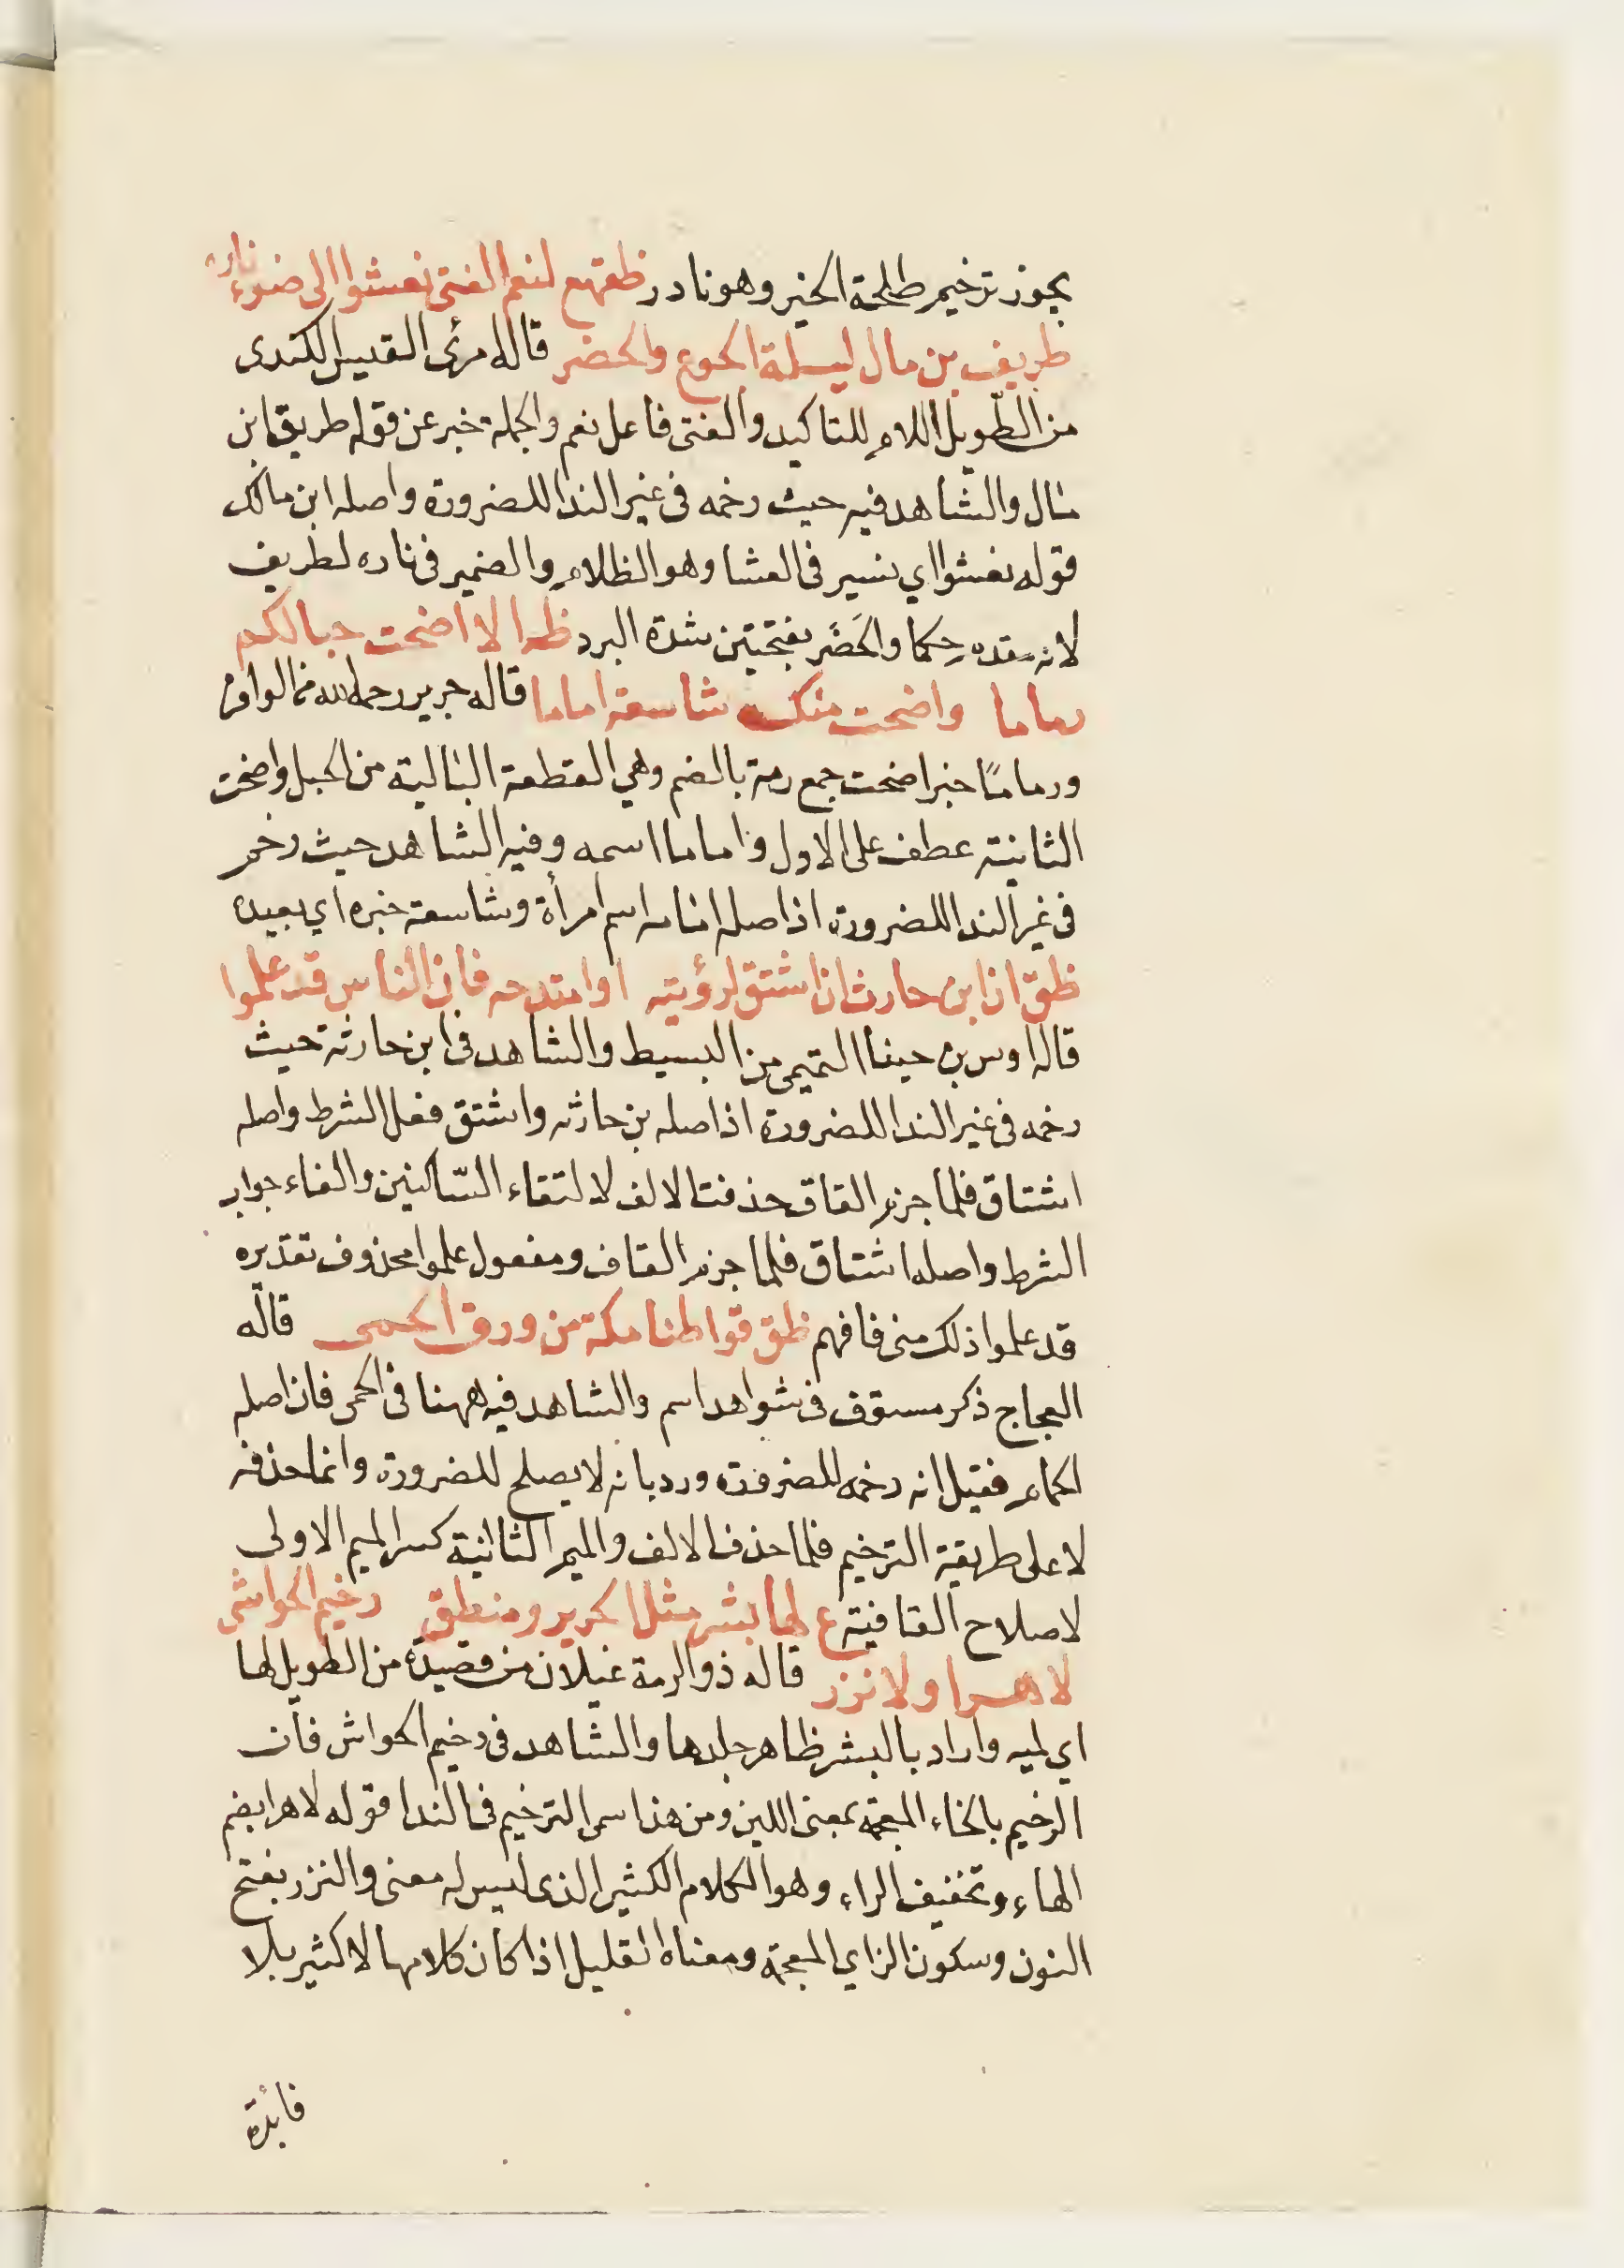 يجوز ترخيم طلحة الخير وهو نادر ظقهع لنعم الفتى تعشوا الى ضوء ناره
طريف بن مال ليلة الجوع والخصر قاله امرئ القيس الكندى
من الطّويل اللام للتاكيد والفتى فاعل نعم والجملة خبر عن قوله طريق ابن
مال والشاهد فيه حيث رخمه فى غير الندا للضرورة واصله ابن مالك
قوله تعشوا اي تسير فى العشا وهو الظلام والضمير فى ناره لطريف
لانه مقدم حكما والخَصَر بفتحتين شدة البرد ظه الا اضحت حبالكم
رماما واضحت منك شاسعة اماما قاله جرير رحمه الله من الوافر
ورمامًا خبر اضحت جمع رمة بالضم وهي القطعة البالية من الحبل واضحت
الثانية عطف على الاول واماما اسمه وفيه الشاهد حيث رخم
فى غير الندا للضرورة اذ اصله امامه اسم امرأة وشاسعة خبره اي بعيدة
ظق ان ابن حارث ان اشتق لرؤيته او امتدحه فان الناس قد علموا
قاله اوس بن حبنا التميمى من البسيط والشاهد فى ابن حارثة حيث
رخمه فى غير الندا للضرورة اذ اصله بن حارثه واشتق فعل الشرط واصله
اشتاق فلما جزم القاق حذفت الالف لالتقاء السّاكنين والفاء جواب
الشرط واصله اشتاق فلما جزم القاف ومفعول علموا محذوف تقديره
قد علموا ذلك منى فافهم ظق قواطنا مكة من ورق الحمى قاله
العجاج ذكر مستوف فى شواهد اسم والشاهد فيه ههنا فى الحمى فان اصله
الحمام فقيل انه رخمه للضرورة ورد بانه لا يصلح للضرورة وانما حذفه
لا على طريقة الترخيم فلما حذف الالف والميم الثانية كسر الميم الاولى
لاصلاح القافية ع لها بشر مثل الحرير ومنطق رخيم الحواشى
لا هرا ولا نزر قاله ذو الرمة غيلان من قصيدة من الطويل لها
اي لميه واراد بالبشر ظاهر جلدها والشاهد فى رخيم الحواش فان
الرخيم بالخاء المعجمة بمعنى اللين ومن هذا سمى الترخيم فى الندا قوله لا هرا بضم
الهاء وتخفيف الراء وهو الكلام الكثير الذى ليس له معنى والنزر بفتح
النون وسكون الزاي المعجمة ومعناه القليل اذا كان كلامها لا كثير بلا
فائدة